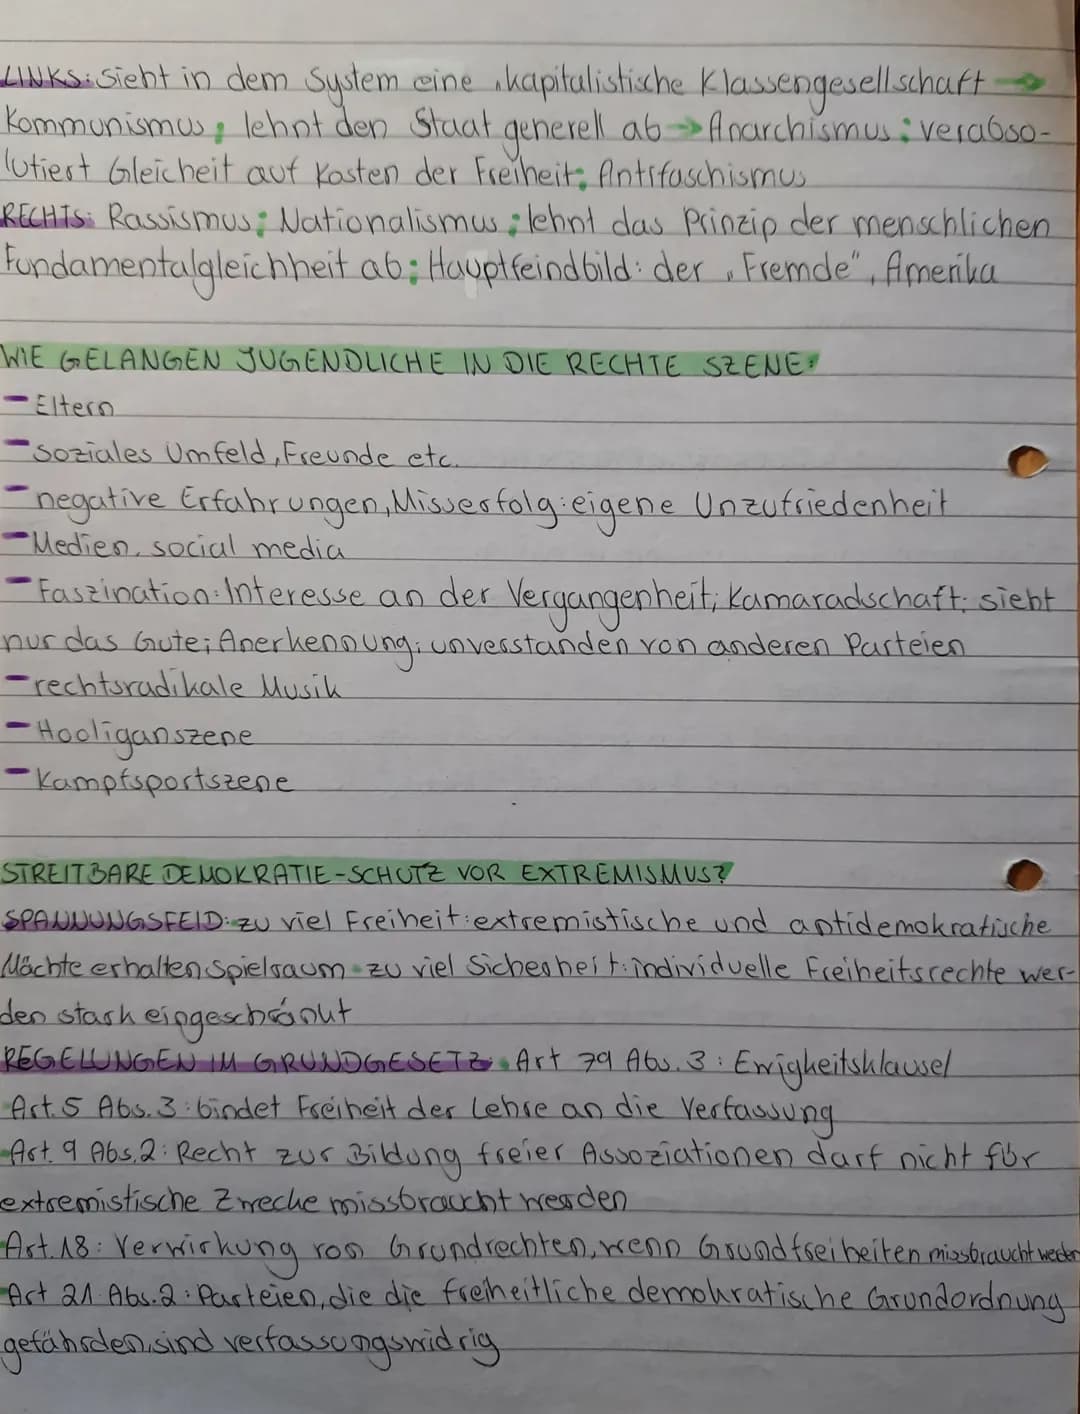 LINKS: sieht in dem System eine "kapitalistische Klassengesellschaft →
Kommunismus; lehnt den Staat generell ab → Anarchismus; verabso-
lutiert Gleicheit auf Kosten der Freiheit; Antifaschismus
RECHTS: Rassismus; Nationalismus; lehnt das Prinzip der menschlichen
Fundamentalgleichheit ab; Hauptfeindbild: der "Fremde", Amerika
WIE GELANGEN JUGENDLICHE IN DIE RECHTE SZENE?
- Eltern
- soziales Umfeld, Freunde etc.
- negative Erfahrungen, Misserfolg: eigene Unzufriedenheit
- Medien, social media
- Faszination: Interesse an der Vergangenheit; Kamaradschaft; sieht
nur das Gute; Anerkennung; unverstanden von anderen Parteien
- rechtsradikale Musik
- Hooliganszene
- Kampfsportszene
STREITBARE DEMOKRATIE-SCHUTZ VOR EXTREMISMUS?
SPANNUNGSFELD: zu viel Freiheit: extremistische und antidemokratische
Mächte erhalten Spielraum • zu viel Sicherheit: individuelle Freiheitsrechte wer-
den stark eingeschränkt
REGELUNGEN IM GRUNDGESETZ: • Art 79 Abs. 3: Ewigheitsklausel
• Art. 5 Abs. 3: bindet Freiheit der Lehre an die Verfassung
• Art. 9 Abs. 2: Recht zur Bildung freier Assoziationen darf nicht für
extremistische Zwecke missbraucht werden
• Art. 18: Verwirkung von Grundrechten, wenn Grundfreiheiten missbraucht werden
• Art 21 Abs. 2: Parteien, die die freiheitliche demokratische Grundordnung
gefährden, sind verfassungswidrig